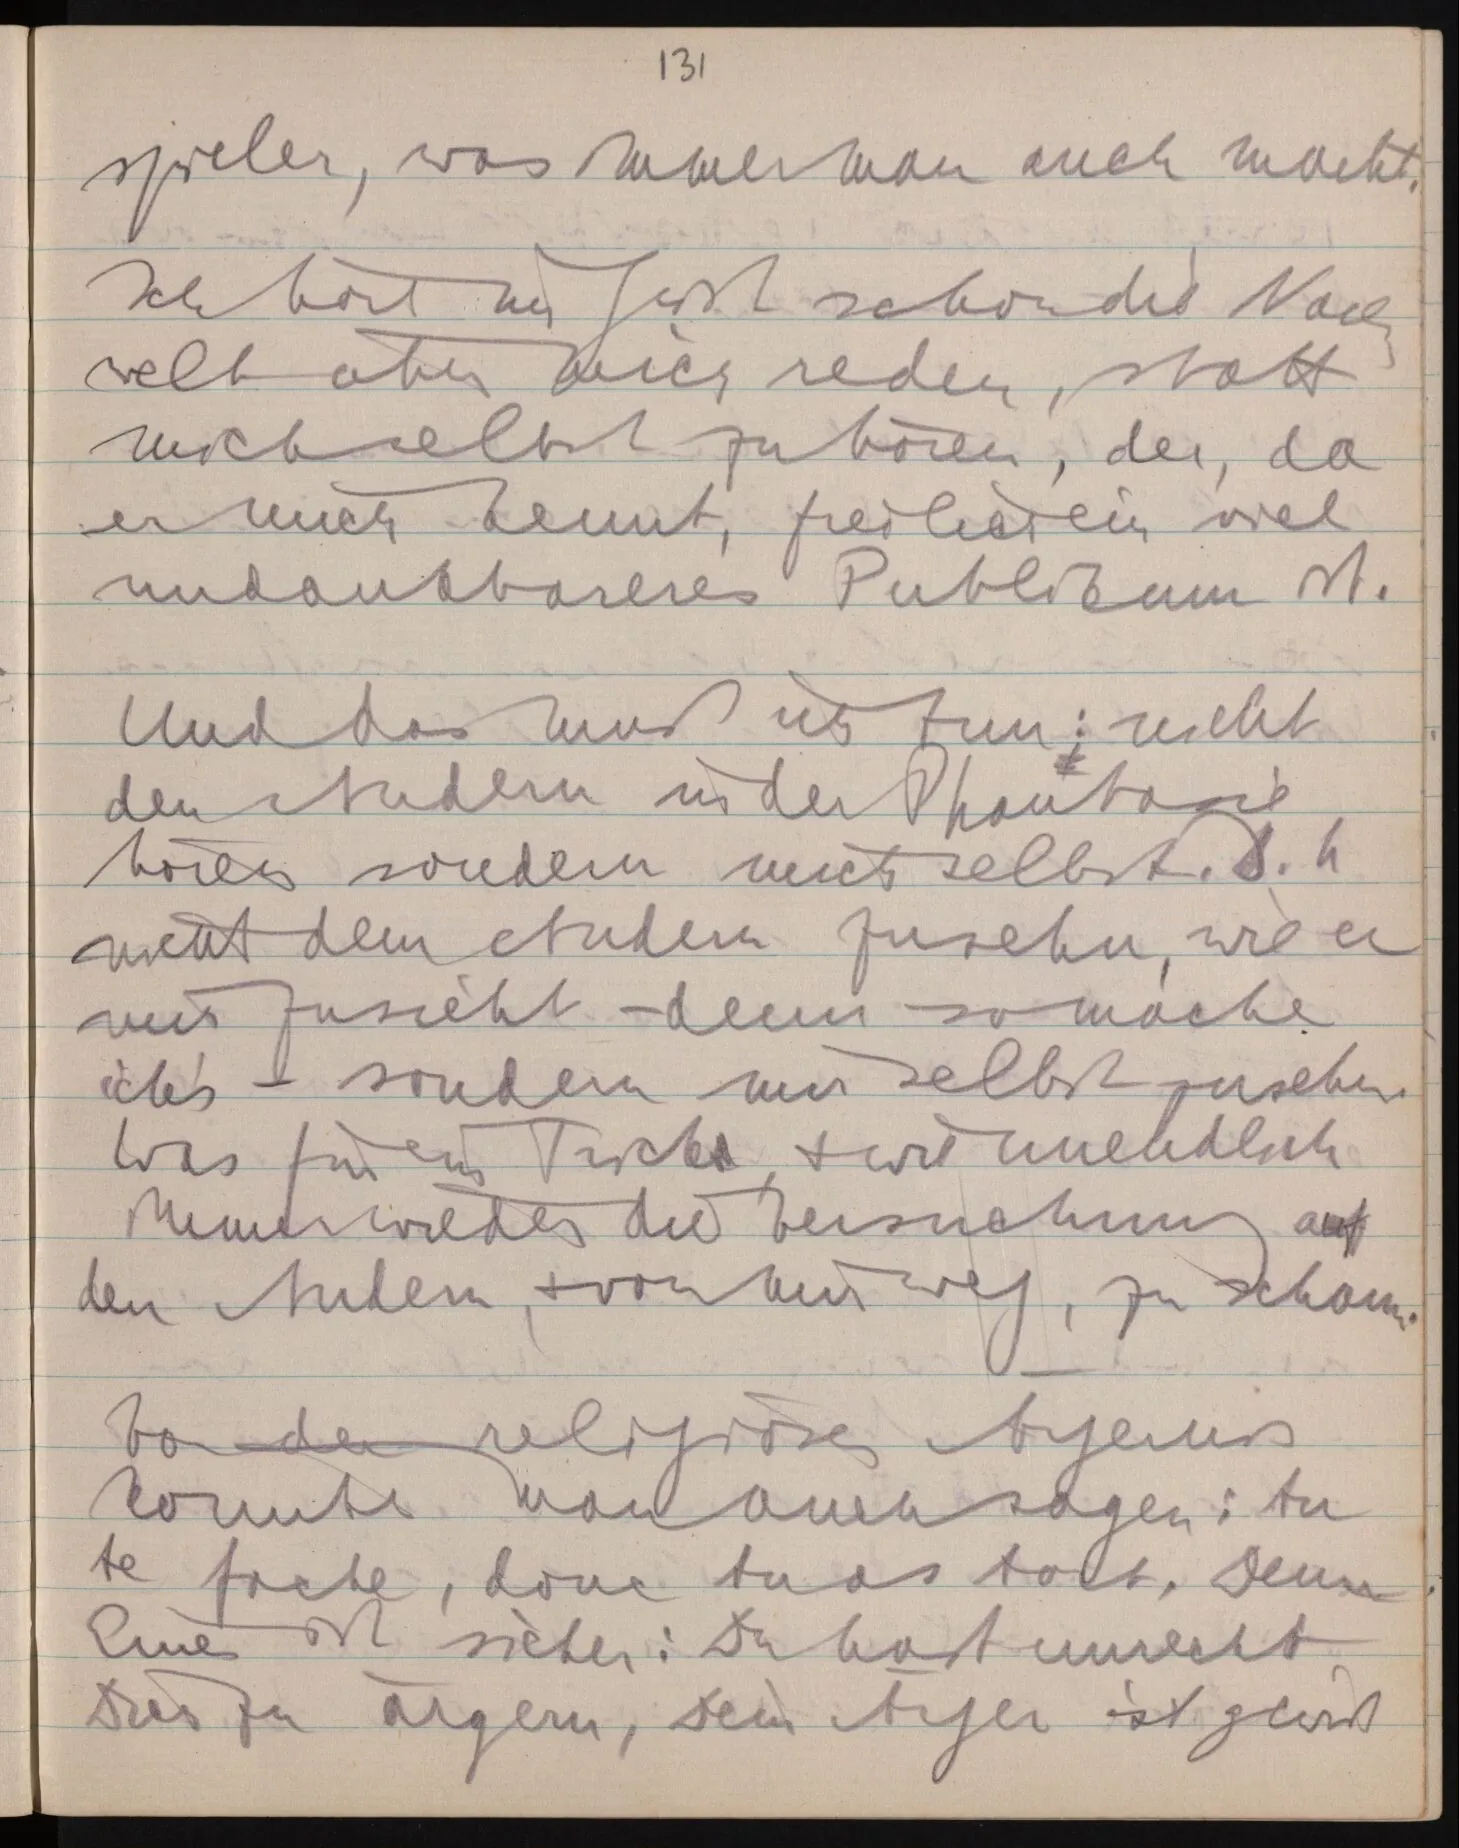 131
spieler, was immer man auch macht.
Ich hört im Geist schon die Nach
welt über mich reden, statt
mich selbst zu hören, der, da
er mich kennt, freilich ein viel
undankbareres Publikum ist.
Und das muß ich tun: nicht
den Andern in der Phantasie
hören sondern mich selbst. D.h
nicht dem Andern zusehn, wie er
mir zusieht – denn so mache
ich's – sondern mir selbst zusehn.
Was für ein Trick, & wie unendlich
immer wieder die Versuchung auf
den Andern, & von mir weg, zu schaun.
Von dem religiösen Ärgernis
könnte man auch sagen: tu
te fache, donc tu as tort. Denn
Eines ist sicher: Du hast unrecht
Dich zu ärgern, Dein Ärger ist gewiß